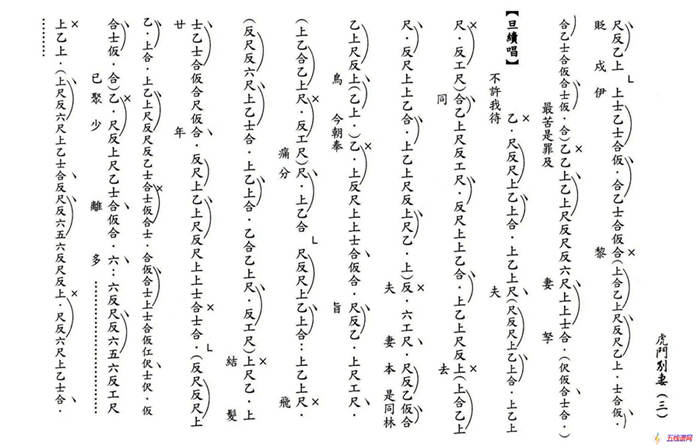 虎門別妻(三)
尺反乙上 上士乙士合仮.合乙士合仮合(上合乙上尺反尺乙上.士合仮.
貶戍伊 黎
合乙士合仮合士仮.合)乙乙上乙上尺反尺反六尺上上士合.(伬仮合士合.)
最苦是罪及 妻孥
【旦續唱】 乙.尺反尺上乙上合.上乙上尺(尺反尺上乙上合.上乙上
不許我待 夫
尺.反工尺)合乙上尺反工尺.反尺上上乙合.上乙上尺反上(上合乙上
同 去
尺.反尺上上乙合.上乙上尺反上尺乙.上)反.六工尺.尺反乙仮合
夫 妻本是同林
乙上尺反上(乙上.)乙.上反上尺上上士合仮合.尺反乙.上尺工尺.
鳥 今朝奉 旨
(上乙合乙上尺.反工尺)尺.上乙合 尺反尺上乙上合:上乙上尺.
痛分 飛
(反尺反六尺上乙士合.上乙上合.乙合乙上尺.反工尺)上尺乙.上
結髮
士乙士合仮合尺仮合.反尺上乙上尺反尺上上士合士合.(反尺反尺上
廿 年
乙.上合.上乙上尺反尺反乙士合士仮合士.合仮合士上士合仮
合士仮.合)乙.尺反上尺乙士合仮合.六:六反尺反六五六反工尺
已聚少 離 多
上乙上.(上尺反六尺上乙士合反尺反六五六反尺反上.反尺六尺上乙士合.
五线谱网